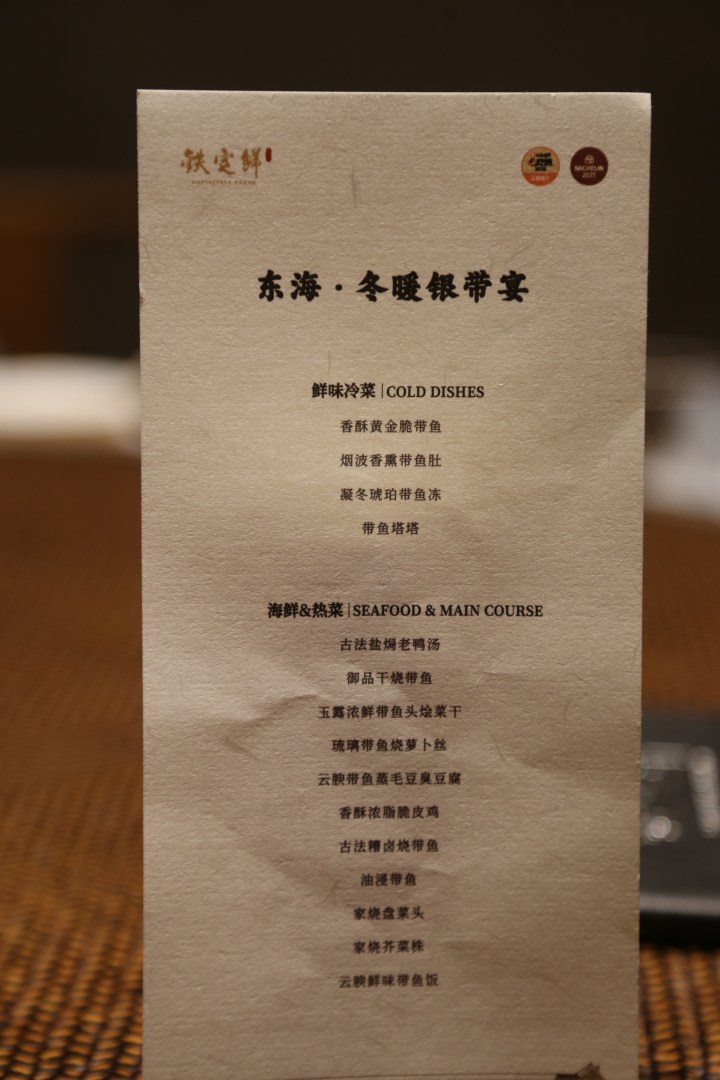 东海·冬暖银带宴
鲜味冷菜|COLD DISHES
香酥黄金脆带鱼
烟波香熏带鱼肚
凝冬琥珀带鱼冻
带鱼塔塔
海鲜&热菜|SEAFOOD & MAIN COURSE
古法盐焗老鸭汤
御品干烧带鱼
玉露浓鲜带鱼头烩菜干
琉璃带鱼烧萝卜丝
云腴带鱼蒸毛豆臭豆腐
香酥浓脂脆皮鸡
古法糟卤烧带鱼
油浸带鱼
家烧盘菜头
家烧芥菜株
云腴鲜味带鱼饭
MICHELIN